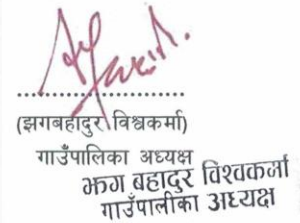 (झगबहादुर विश्वकर्मा)
गाउँपालिका अध्यक्ष
झग बहादुर विश्वकर्मा
गाउँपालीका अध्यक्ष